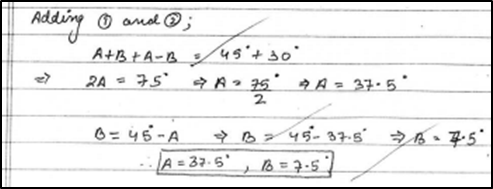 Adding ① and ②;
A+B+A-B = 45°+30°
⇒ 2A = 75° ⇒ A = 75°/2 ⇒ A = 37.5°
B = 45°-A ⇒ B = 45°-37.5° ⇒ B = 7.5°
∴ A = 37.5°, B = 7.5°